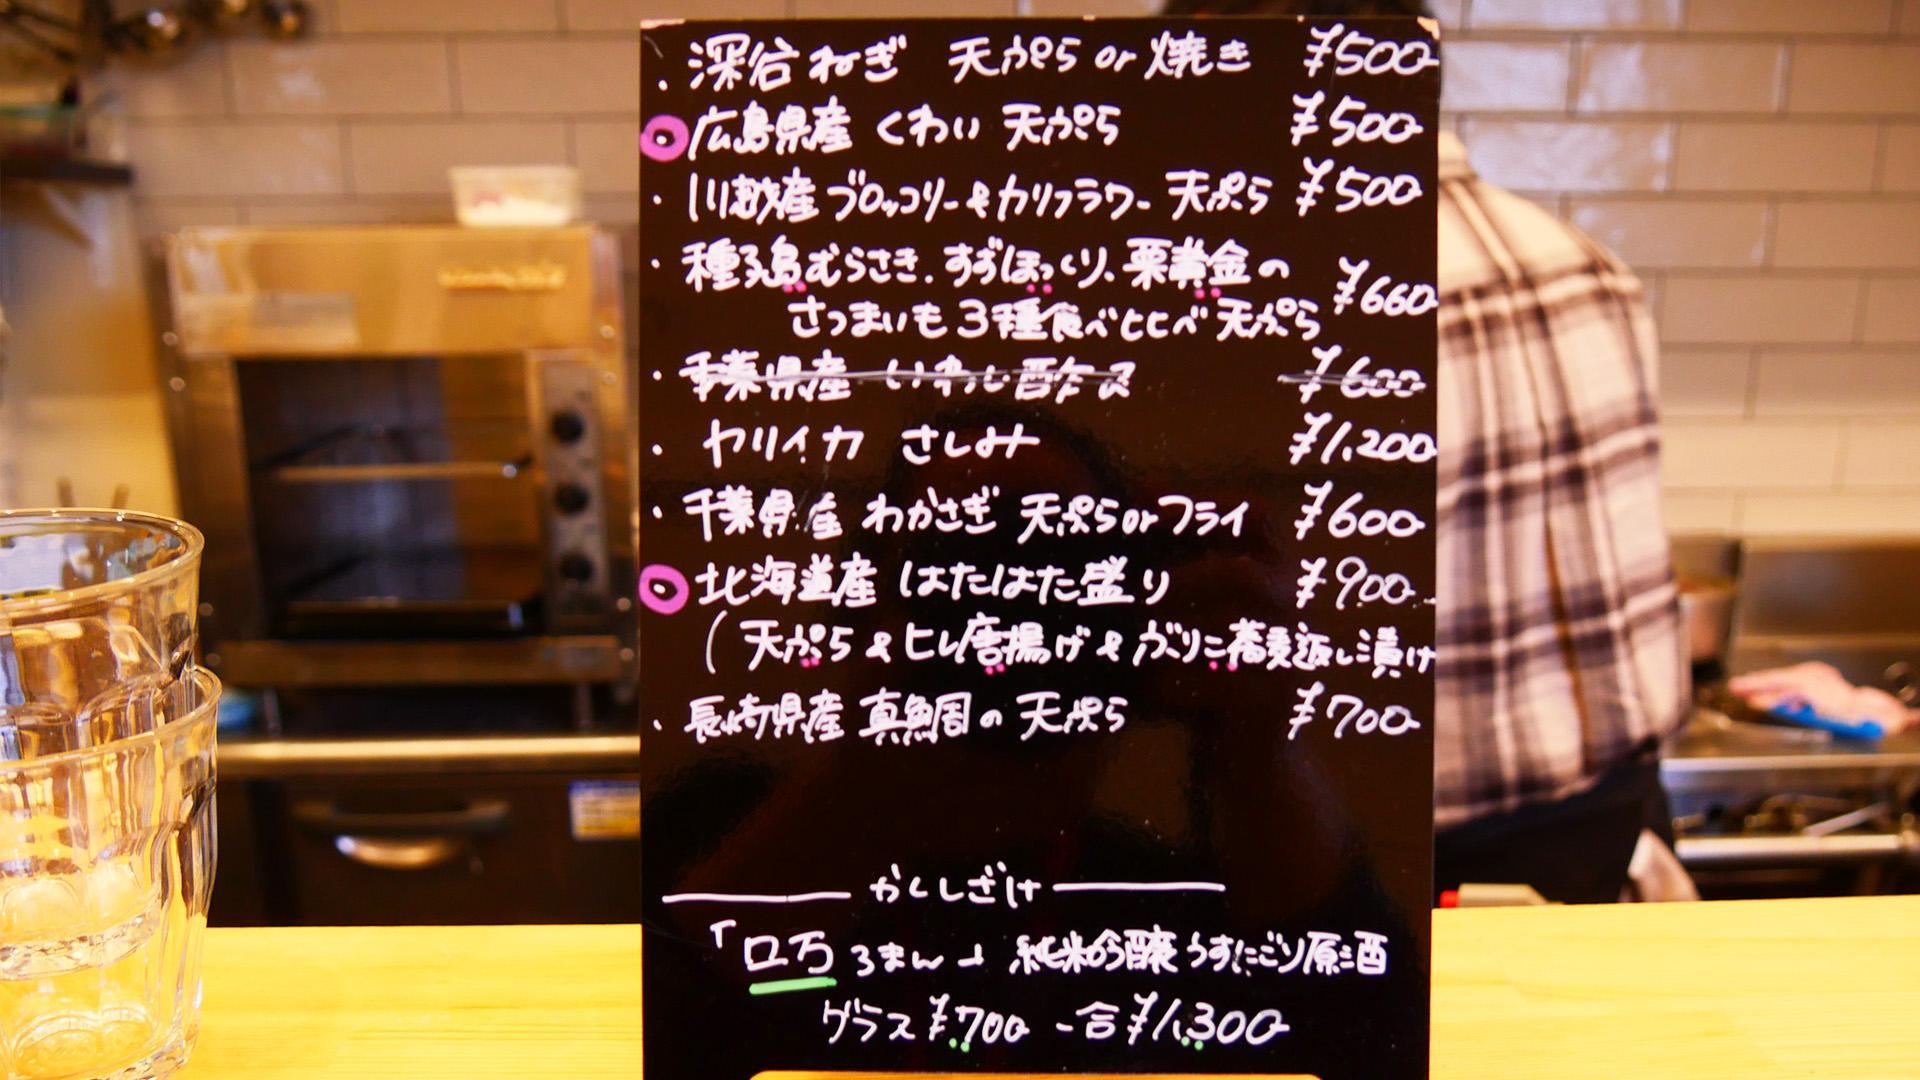 ・深谷ねぎ 天ぷら or 焼き ¥500
広島県産 くわい 天ぷら ¥500
・川越産 ブロッコリー&カリフラワー 天ぷら ¥500
・種子島むらさき、すずほっくり、栗黄金の
さつまいも3種食べヒヒベ天ぷら ¥660
・千葉県産 いわし酢〆 ¥600
・ヤリイカ さしみ ¥1,200
・千葉県産 わかさぎ 天ぷら or フライ ¥600
北海道産 はたはた盛り ¥900
(天ぷら & ヒレ唐揚げ & ガリニ蕎麦返し漬け
・長崎県産 真鯛の天ぷら ¥700
かくしざけ
「ロ万 ろまん」純米吟醸うすにごり原酒
グラス ¥700 一合 ¥1,300